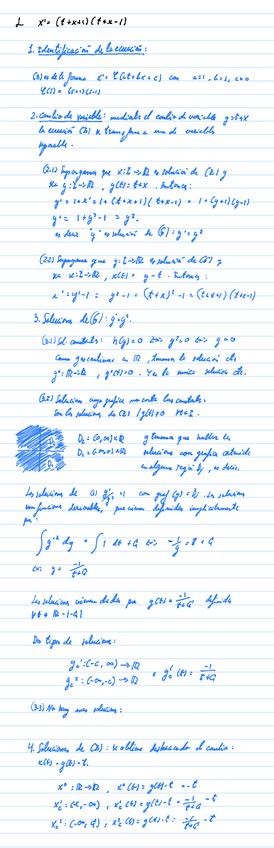 2. x' = (t+x+1)(t+x-1)
1. Identificación de la ecuación:
(2) es de la forma x' = φ(at+bx+c) con a=1, b=1, c=0
φ(s) = (s+1)(s-1)
2. Cambio de variable: mediante el cambio de variable y=t+x
la ecuación (2) se transforma a una de variable
separable.
(2.1) Supongamos que x: I→ℝ es solución de (2) y
sea y: I→ℝ, y(t)=t+x. Entonces:
y' = 1+x' = 1+(t+x+1)(t+x-1) = 1+(y+1)(y-1)
y' = 1+y²-1 = y²,
es decir "y" es solución de (6): y'=y²
(2.2) Supongamos que y: I→ℝ es solución de (6) y
sea x: I→ℝ, x(t) = y-t. Entonces:
x' = y'-1 = y²-1 = (t+x)²-1 = (t+x+1)(t+x-1)
3. Soluciones de (6): y'=y².
(3.1) Sol. constantes: h(y)=0 ⇔ y²=0 ⇔ y=0
Como y es continua en ℝ, tenemos la solución cte.
y⁰: ℝ→ℝ, y⁰(t)=0. Y es la única solución cte.
(3.2) Soluciones cuya gráfica no corta las constantes.
Son las soluciones de (6) / y(t)≠0 ∀t∈I.
D₁ = (0,∞)×ℝ
D₂ = (-∞,0)×ℝ
y tenemos que hallar las
soluciones con gráfica contenida
en alguna región Dj, es decir,
las soluciones de con graf(y) ⊂ Dj. Las soluciones
son funciones derivables, que vienen definidas implícitamente
por:
∫ y⁻² dy = ∫ 1 dt + C ⇔ -1/y = t + C
⇔ y = -1/(t+C)
Las soluciones vienen dadas por y(t) = -1/(t+C) definida
∀t∈ℝ-{-C}
Dos tipos de soluciones:
y_c¹: (-C, ∞) → ℝ
y_c²: (-∞, -C) → ℝ
y_c(t) = -1/(t+C)
(3.3) No hay más soluciones:
4. Soluciones de (2): se obtiene deshaciendo el cambio:
x(t) = y(t)-t.
x⁰: ℝ→ℝ, x⁰(t) = y(t)-t = -t
x_c¹: (-C, ∞), x_c¹(t) = y(t)-t = -1/(t+C) - t
x_c²: (-∞, -C), x_c²(t) = y(t)-t = -1/(t+C) - t